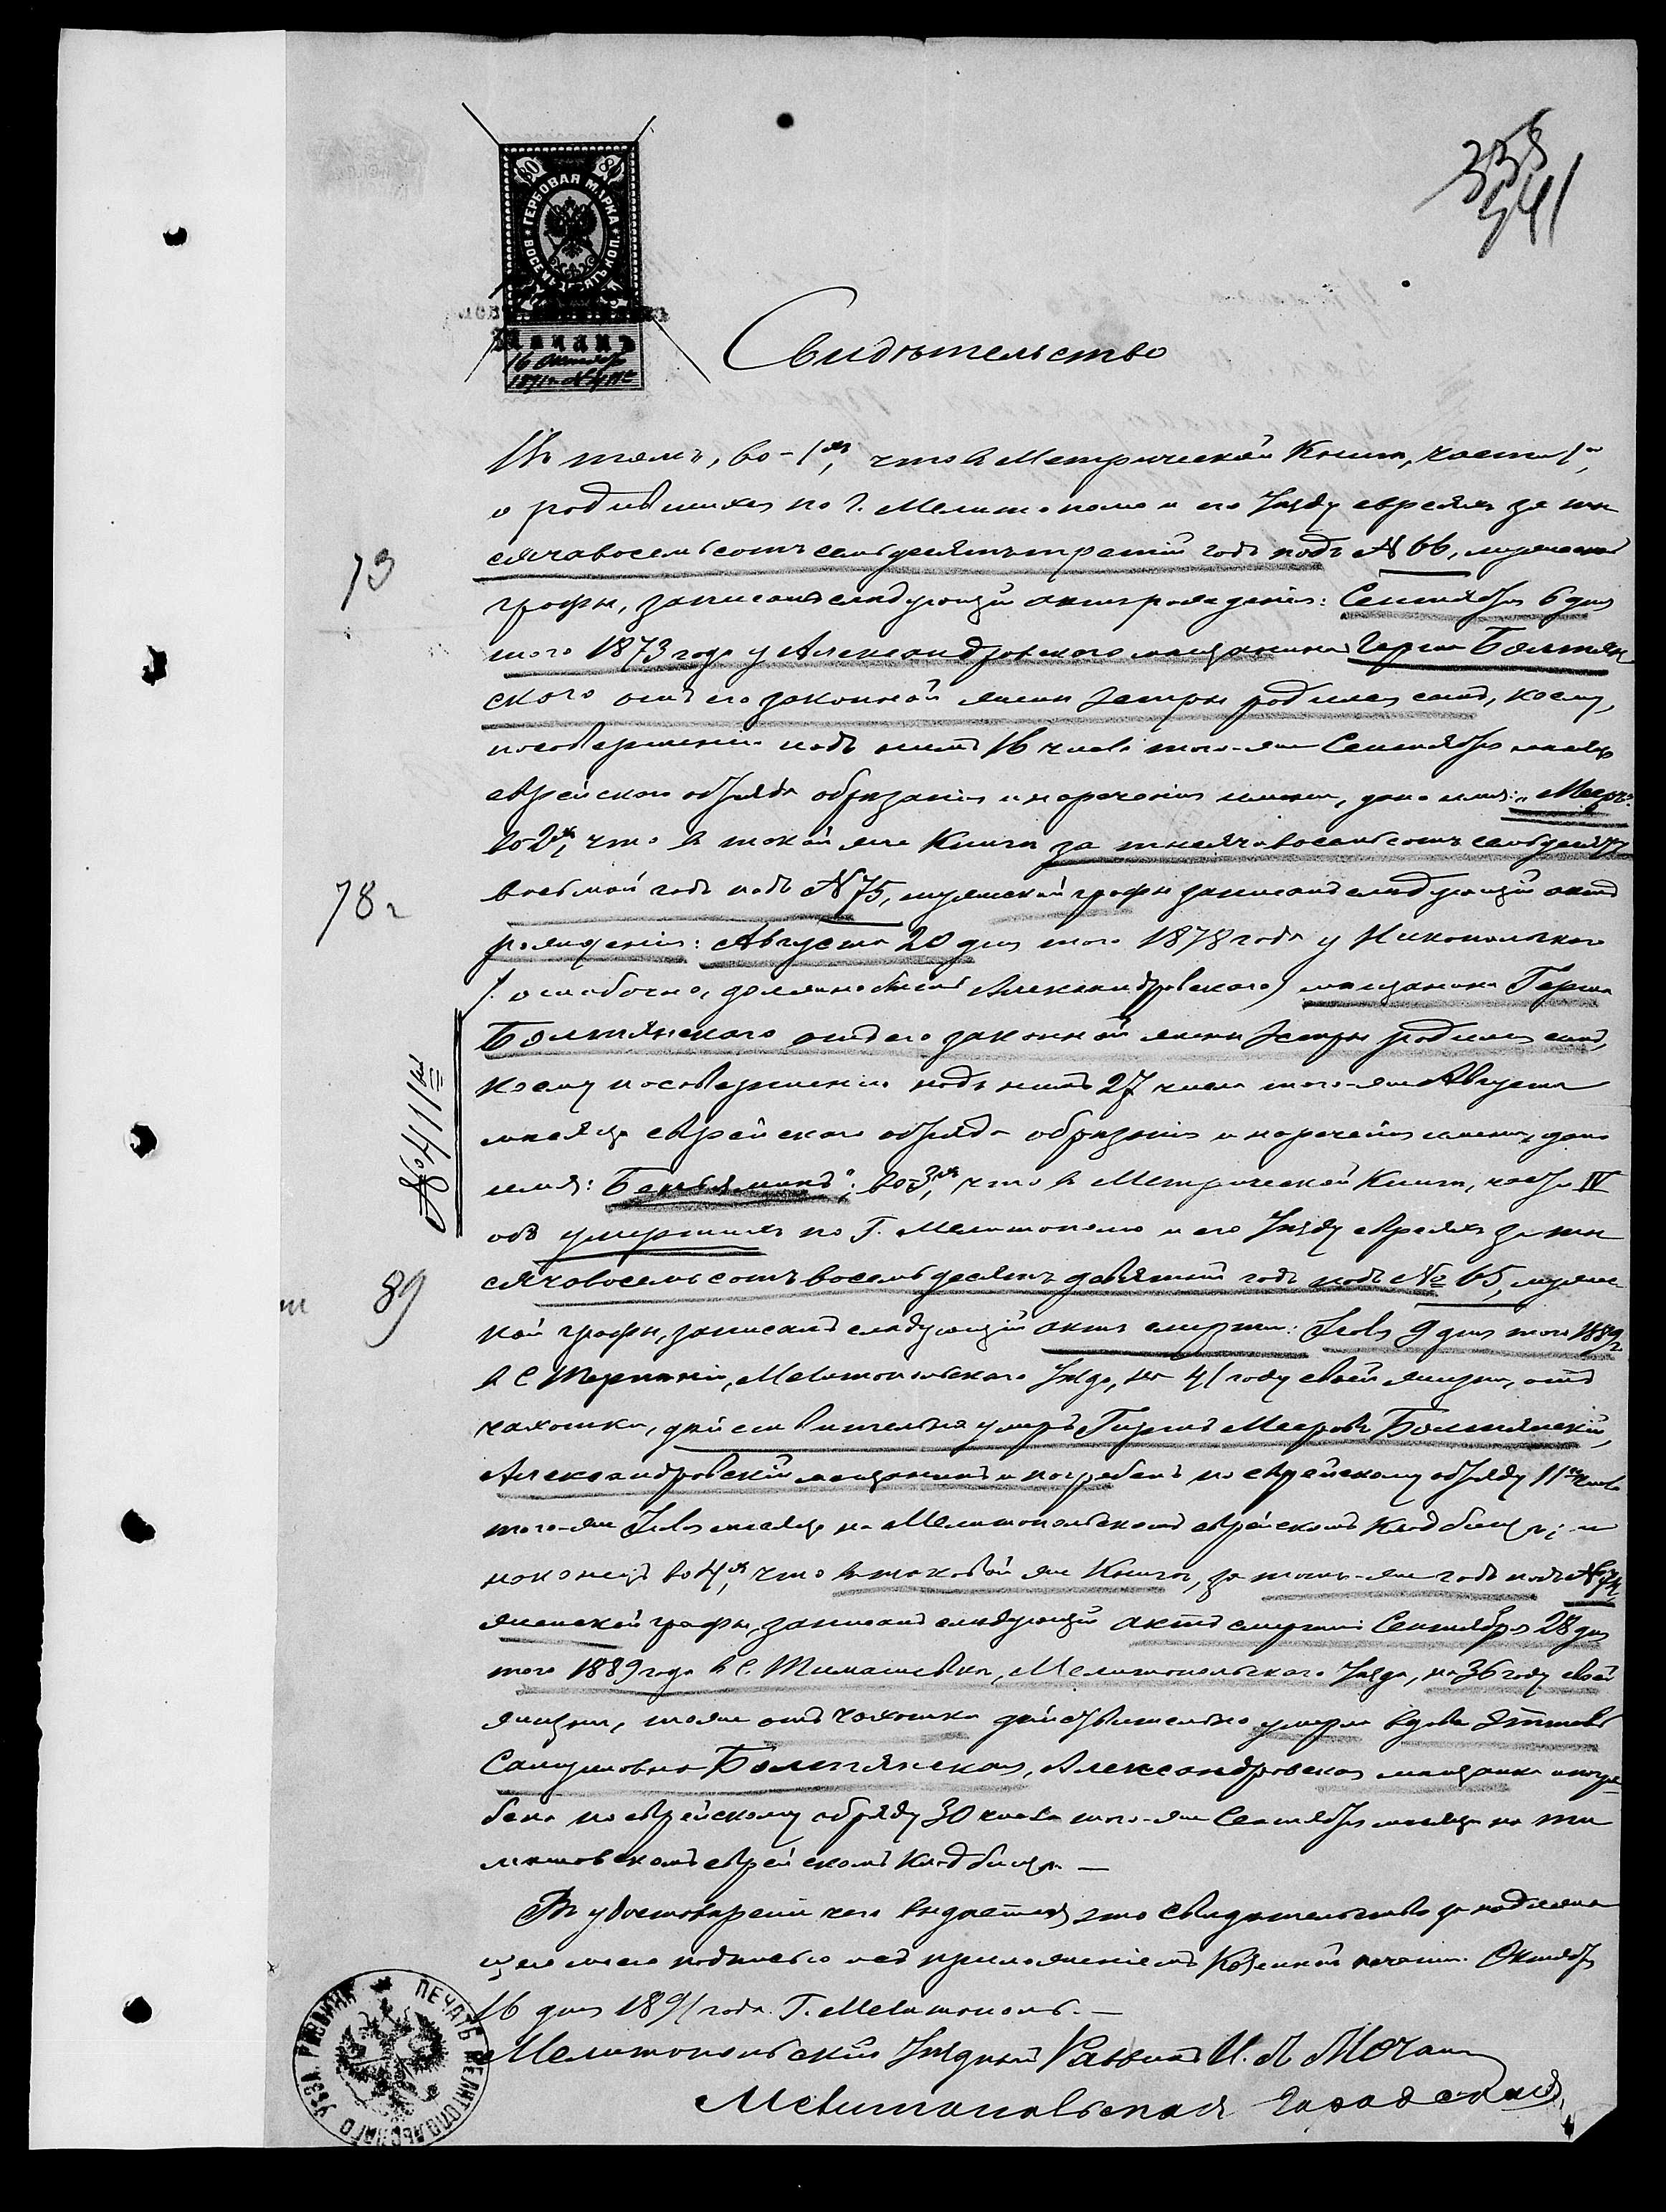 338
541
80 80
ГЕРБОВАЯ МАРКА
ВОСЕМЬДЕСЯТЪ КОП.
16 Октября
1891 г. № 411
Свидѣтельство
Въ томъ, во-1хъ, что въ Метрической Книгѣ, части 1й,
о родившихся по г. Мелитополю и его Уѣзду евреяхъ за ты
сяча восемьсотъ семьдесятъ третій годъ подъ № 66, мужеской
графы, записанъ слѣдующій актъ рожденія: Сентября 6 дня
73
того 1873 года у Александровскаго мѣщанина Герша Болтян
скаго отъ его законной жены Эстры родился сынъ, коему,
по совершеніи надъ нимъ 16 числа того-же Сентября мѣсяца
еврейскаго обряда обрѣзанія и нареченія имени, дано имя: „Мееръ“
во 2хъ, что въ такой же Книгѣ за тысяча восемьсотъ семьдесятъ
восьмой годъ подъ № 75, мужеской графы записанъ слѣдующій актъ
78 г
рожденія: Августа 20 дня того 1878 года у Никопольскаго
(ошибочно, долженъ быть Александровскаго) мѣщанина Герша
Болтянскаго отъ его законной жены Эстры родился сынъ,
коему по совершеніи надъ нимъ 27 числа того-же Августа
мѣсяца еврейскаго обряда обрѣзанія и нареченія имени, дано
№ 411
имя: „Беньяминъ“; во 3хъ, что въ Метрической Книгѣ, части IV
объ умершихъ по г. Мелитополю и его Уѣзду евреяхъ за ты
сяча восемьсотъ восемьдесятъ девятый годъ подъ № 65, мужес-
89
кой графы, записанъ слѣдующій актъ смерти: Іюля 9 дня того 1889 г.
въ с. Терпѣніи, Мелитопольскаго Уѣзда, на 41 году своей жизни, отъ
чахотки, дѣйствительно умеръ Гершъ Мееровъ Болтянскій,
Александровскій мѣщанинъ и погребенъ по еврейскому обряду 11го числа
того-же Іюля мѣсяца на Мелитопольскомъ еврейскомъ Кладбищѣ; и
наконецъ во 4хъ, что въ таковой же Книгѣ, за тотъ-же годъ подъ №
женской графы, записанъ слѣдующій актъ смерти: Сентября 28 дня
того 1889 года въ с. Тимашевкѣ, Мелитопольскаго Уѣзда, на 36 году своей
жизни, тоже отъ чахотки дѣйствительно умерла вдова
Самуиловна Болтянская, Александровская мѣщанка и погре
бена по еврейскому обряду 30 числа того-же Сентября мѣсяца на Ти
машовскомъ еврейскомъ Кладбищѣ. —
Въ удостовѣреніи чего выдается это свидѣтельство за надлежа
щею моею подписью и съ приложеніемъ Казенной печати. Октября
16 дня 1891 года. Г. Мелитополь. —
Мелитопольскій Уѣздный Раввинъ И. Л. Мочанъ
Мелитопольская Городская
ПЕЧАТЬ МЕЛИТОПОЛЬСКАГО УѢЗД. РАВВИНА